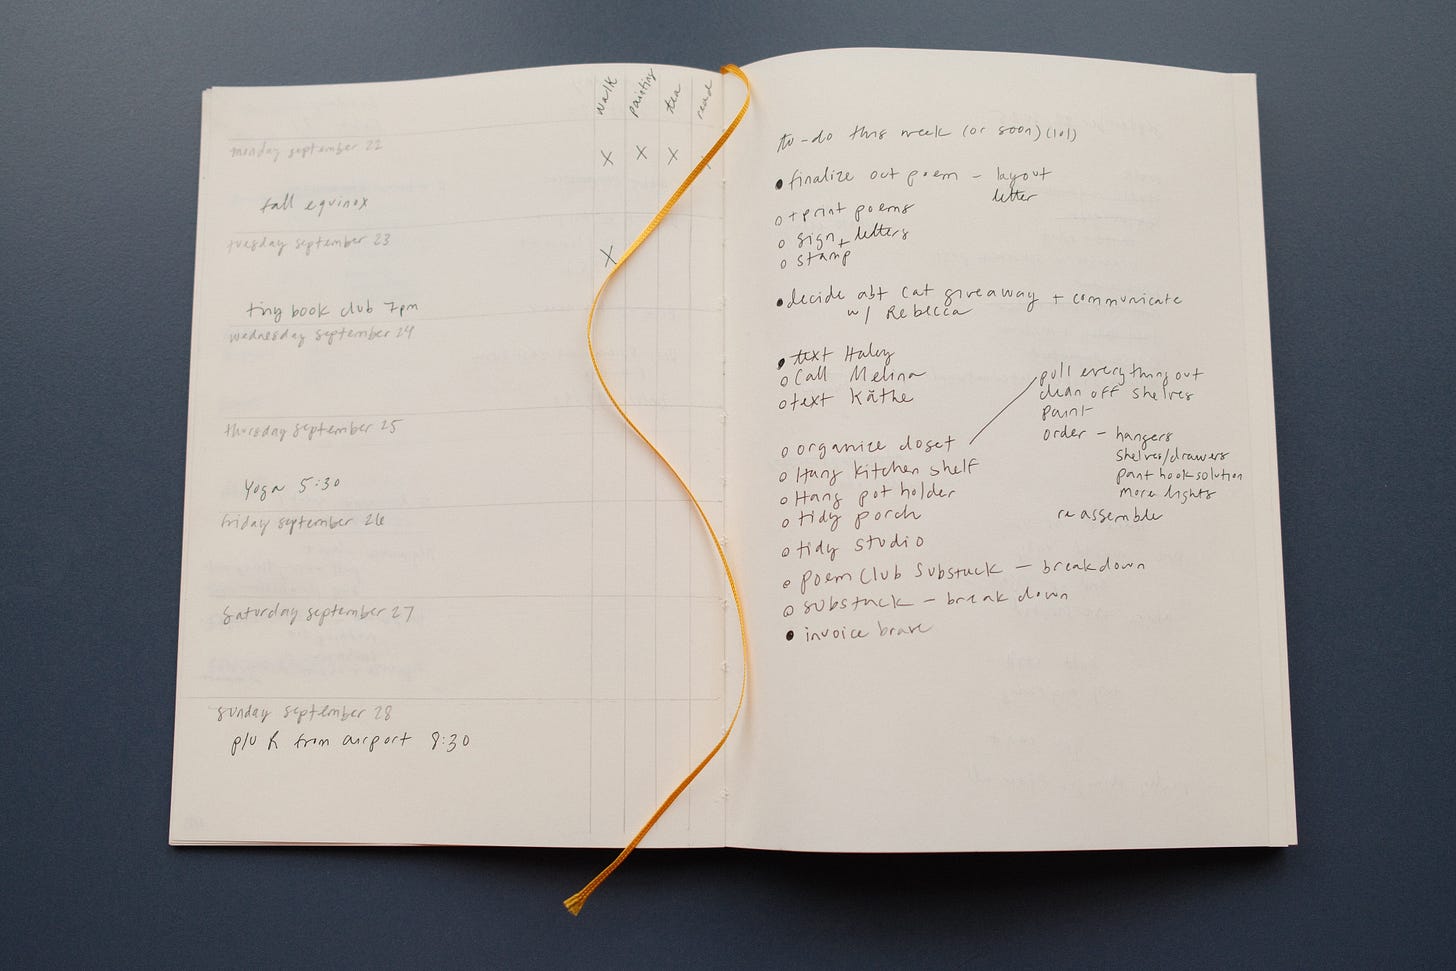 walk painting tea read
monday september 22
X X X
fall equinox
tuesday september 23
X
tiny book club 7pm
wednesday september 24
thursday september 25
Yoga 5:30
friday september 26
saturday september 27
sunday september 28
p/u R from airport 9:30
to-do this week (or soon) (lol)
finalize oct poem – layout
letter
+ print poems
sign + letters
stamp
decide abt cat giveaway + communicate
w/ Rebecca
text Haley
Call Melina
text Käthe
organize closet
Hang kitchen shelf
Hang pot holder
tidy porch
tidy studio
poem club Substack – breakdown
substack – break down
invoice brave
pull everything out
clean off shelves
paint
order – hangers
shelves/drawers
pant hook solution
more lights
re assemble